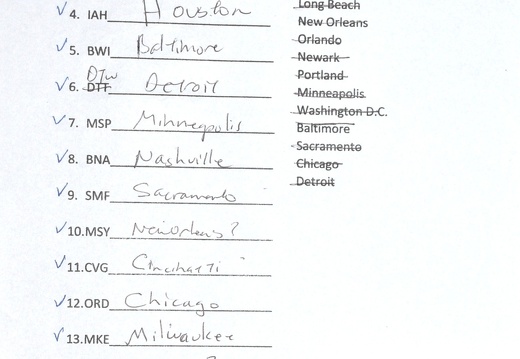 4. IAH Houston
5. BWI Baltimore
DTW
6. DTT Detroit
7. MSP Minneapolis
8. BNA Nashville
9. SMF Sacramento
10.MSY Neworleans?
11.CVG Cincinatti
12.ORD Chicago
13.MKE Milwaukee
Long Beach
New Orleans
Orlando
Newark
Portland
Minneapolis
Washington D.C.
Baltimore
Sacramento
Chicago
Detroit